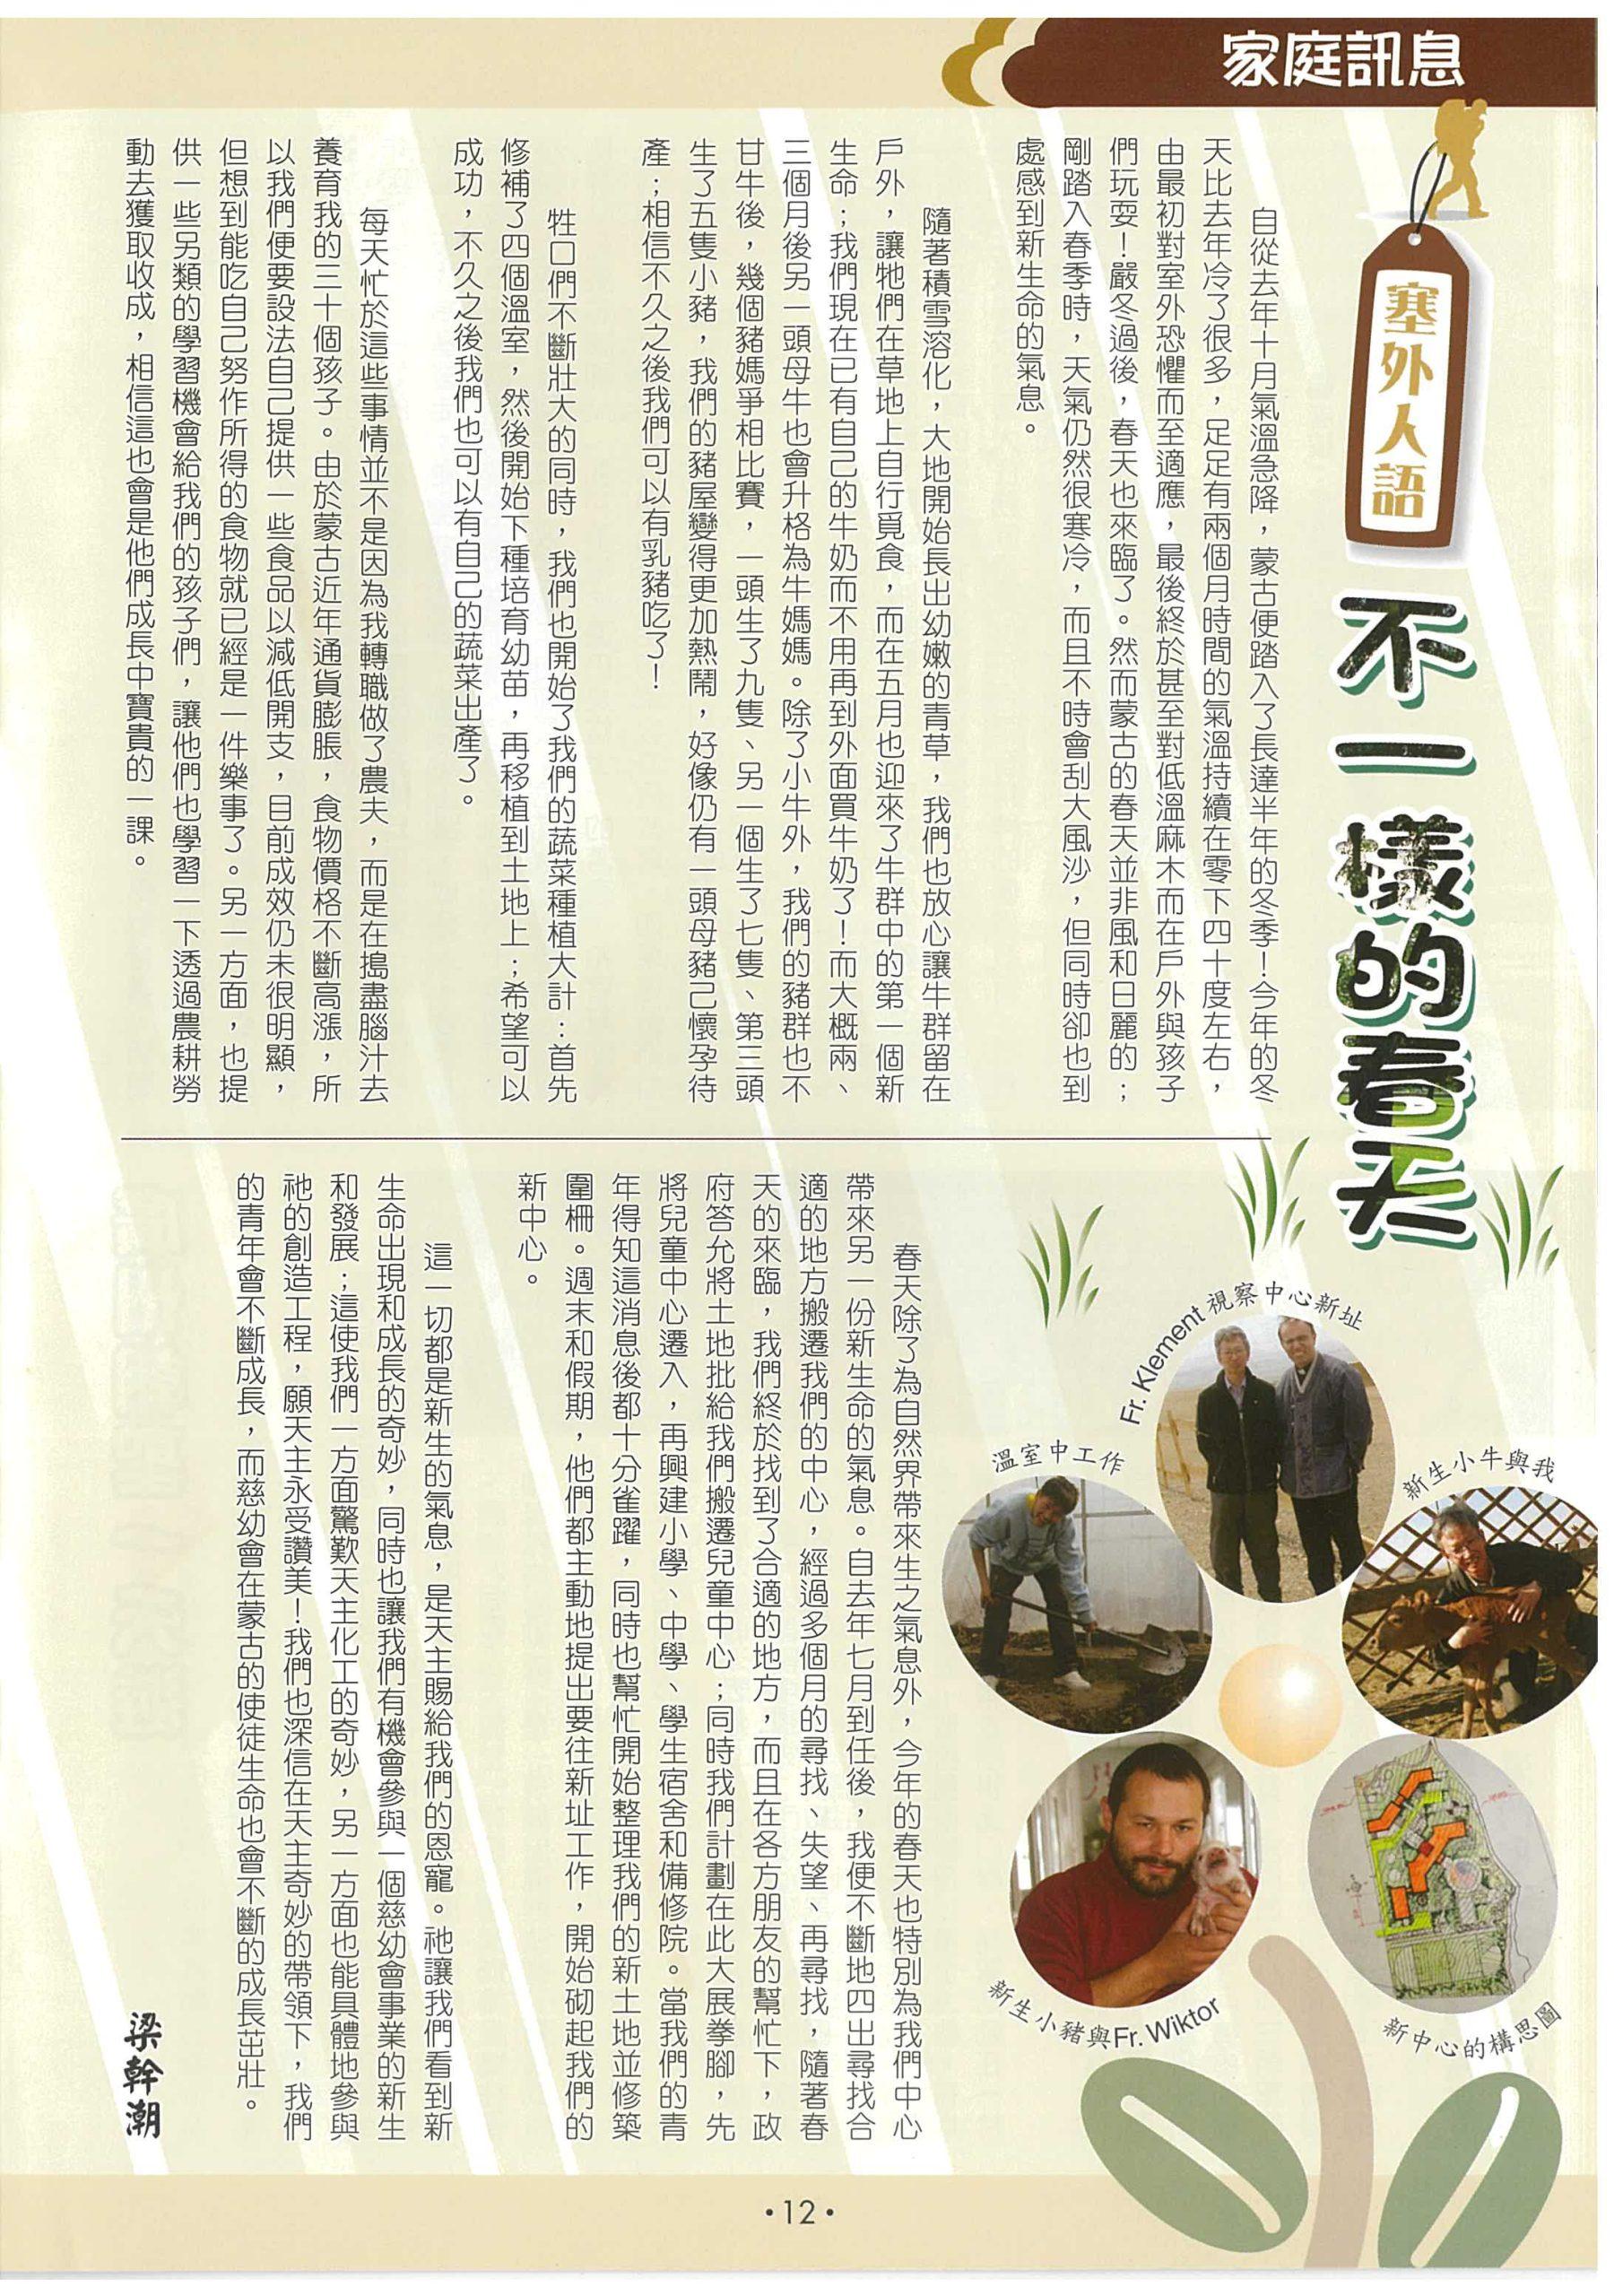 家庭訊息
塞外人語
不一樣的春天
自從去年十月氣溫急降，蒙古便踏入了長達半年的冬季！今年的冬
天比去年冷了很多，足足有兩個月時間的氣溫持續在零下四十度左右，
由最初對室外恐懼而至適應，最後終於甚至對低溫麻木而在戶外與孩子
們玩耍！嚴冬過後，春天也來臨了。然而蒙古的春天並非風和日麗的；
剛踏入春季時，天氣仍然很寒冷，而且不時會刮大風沙，但同時卻也到
處感到新生命的氣息。
隨著積雪溶化，大地開始長出幼嫩的青草，我們也放心讓牛群留在
戶外，讓牠們在草地上自行覓食，而在五月也迎來了牛群中的第一個新
生命；我們現在已有自己的牛奶而不用再到外面買牛奶了！而大概兩、
三個月後另一頭母牛也會升格為牛媽媽。除了小牛外，我們的豬群也不
甘牛後，幾個豬媽爭相比賽，一頭生了九隻、另一個生了七隻、第三頭
生了五隻小豬，我們的豬屋變得更加熱鬧，好像仍有一頭母豬已懷孕待
產；相信不久之後我們可以有乳豬吃了！
牲口們不斷壯大的同時，我們也開始了我們的蔬菜種植大計：首先
修補了四個溫室，然後開始下種培育幼苗，再移植到土地上；希望可以
成功，不久之後我們也可以有自己的蔬菜出產了。
每天忙於這些事情並不是因為我轉職做了農夫，而是在搗盡腦汁去
養育我的三十個孩子。由於蒙古近年通貨膨脹，食物價格不斷高漲，所
以我們便要設法自己提供一些食品以減低開支，目前成效仍未很明顯，
但想到能吃自己努作所得的食物就已經是一件樂事了。另一方面，也提
供一些另類的學習機會給我們的孩子們，讓他們也學習一下透過農耕勞
動去獲取收成，相信這也會是他們成長中寶貴的一課。
Fr. Klement 視察中心新址
新生小牛與我
溫室中工作
新生小豬與Fr. Wiktor
新中心的構思圖
春天除了為自然界帶來生之氣息外，今年的春天也特別為我們中心
帶來另一份新生命的氣息。自去年七月到任後，我便不斷地四出尋找合
適的地方搬遷我們的中心，經過多個月的尋找、失望、再尋找，隨著春
天的來臨，我們終於找到了合適的地方，而且在各方朋友的幫忙下，政
府答允將土地批給我們搬遷兒童中心；同時我們計劃在此大展拳腳，先
將兒童中心遷入，再興建小學、中學、學生宿舍和備修院。當我們的青
年得知這消息後都十分雀躍，同時也幫忙開始整理我們的新土地並修築
圍柵。週末和假期，他們都主動地提出要往新址工作，開始砌起我們的
新中心。
這一切都是新生的氣息，是天主賜給我們的恩寵。祂讓我們看到新
生命出現和成長的奇妙，同時也讓我們有機會參與一個慈幼會事業的新生
和發展；這使我們一方面驚歎天主化工的奇妙，另一方面也能具體地參與
祂的創造工程，願天主永受讚美！我們也深信在天主奇妙的帶領下，我們
的青年會不斷成長，而慈幼會在蒙古的使徒生命也會不斷的成長茁壯。
梁幹潮
•12•